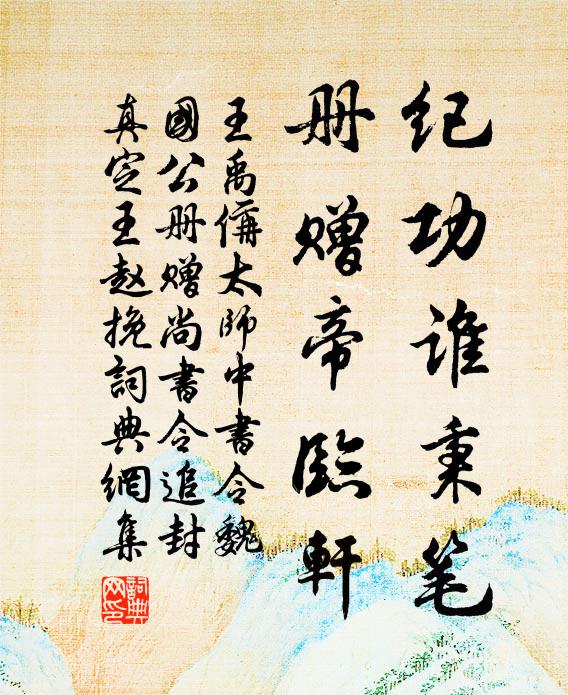 纪功谁秉笔
册赠帝临軒
王禹偁太师中書令魏
國公册赠尚書令追封
真定王赵挽詞典網集
詞典
网印